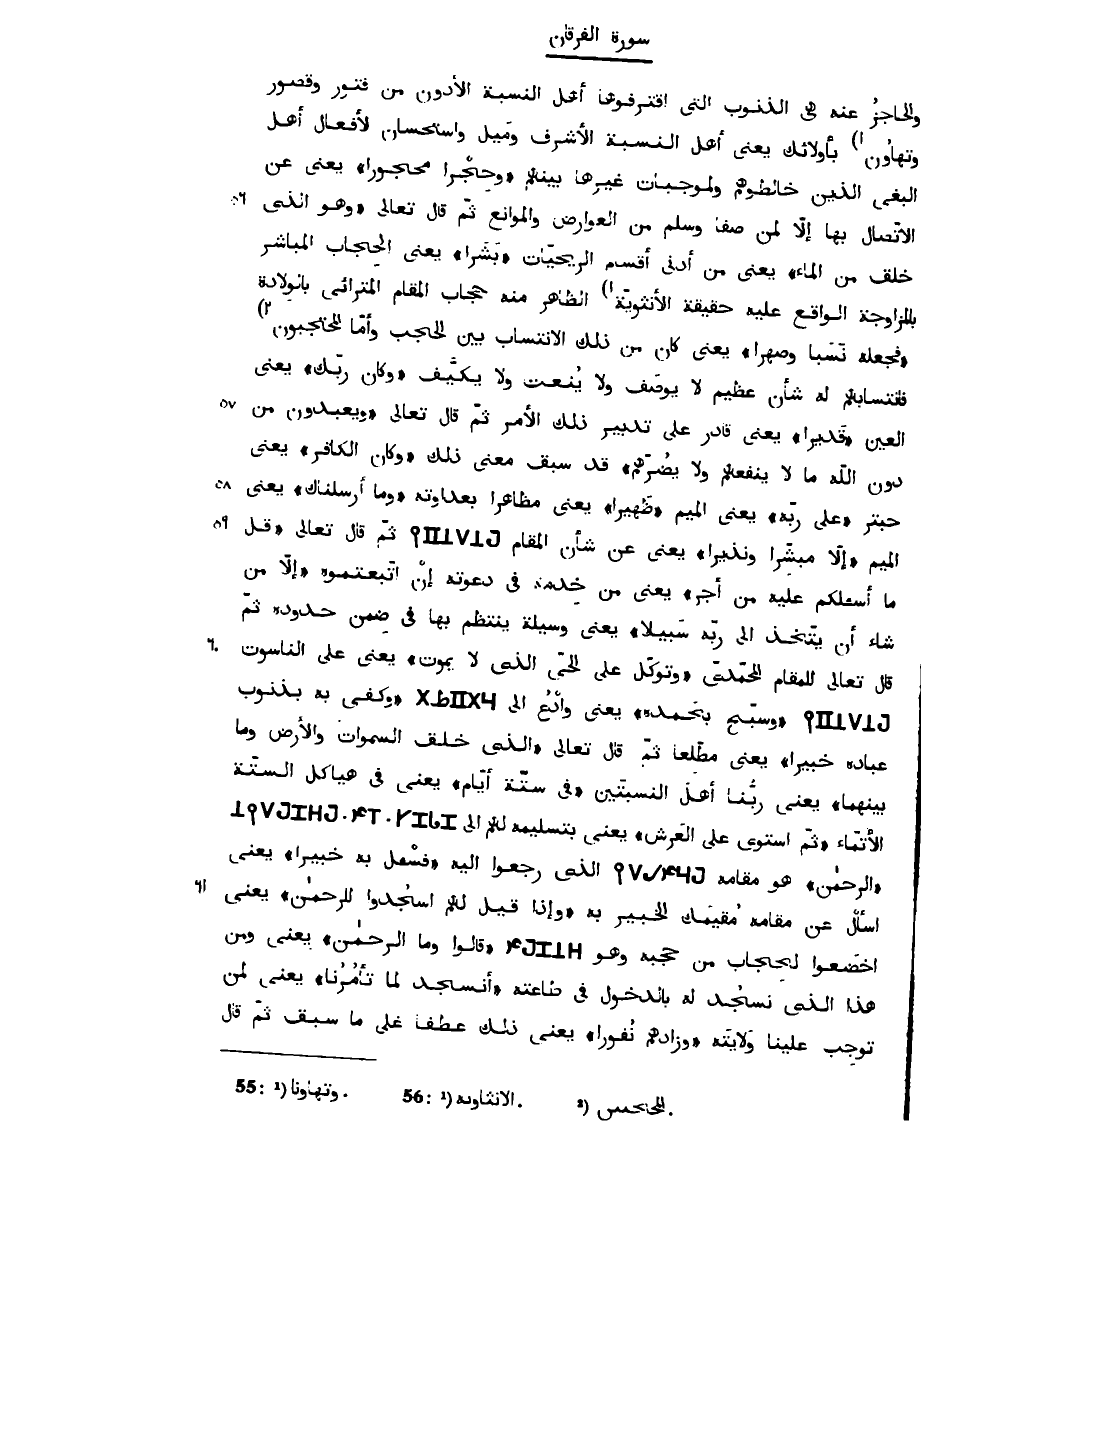 سورة الفرقان
والحاجزُ عنه هى الذنوب التى اقترفوها أهل النسبة الأدون من فتور وقصور
وتهاوُن¹) بأولائك يعنى أهل النسبة الأشرف ومَيل واستحسان لأفعال أهل
البغى الذين خالطوهم ولموجبات غيرها بينهم «وحِجْرا محجورا» يعنى عن
الاتّصال بها إلّا لمن صفا وسلم من العوارض والموانع ثمّ قال تعالى «وهو الذى ٥٦
خلق من الماء» يعنى من أدنى أقسام الريحيّات «بَشَرا» يعنى الحِجاب المباشر
بالمزاوجة الواقع عليه حقيقة الأنثويّة¹) الظاهر منه حجاب المقام المترائى بالولادة
«فجعله نَسَبا وصهرا» يعنى كان من ذلك الانتساب بين الحجب وأمّا المحتجبون²)
فانتسابهم له شأن عظيم لا يوصَف ولا يُنعت ولا يكيَّف «وكان ربّك» يعنى
العين «قَديرا» يعنى قادر على تدبير ذلك الأمر ثمّ قال تعالى «ويعبدون من ٥٧
دون اللّه ما لا ينفعهم ولا يضُرّهم» قد سبق معنى ذلك «وكان الكافر» يعنى
حبتر «على ربّه» يعنى الميم «ظَهيرا» يعنى مظاهرا بعداوته «وما أرسلناك» يعنى ٥٨
الميم «إلّا مبشِّرا ونذيرا» يعنى عن شأن المقام ثمّ قال تعالى «قل ٥٩
ما أسئلكم عليه من أجر» يعنى من خِدمة فى دعوته إنْ اتّبعتموه «إلّا من
شاء أن يتّخذ الى ربّه سَبيلا» يعنى وسيلة ينتظم بها فى ضِمن حدوده ثمّ
قال تعالى للمقام المحمّدىّ «وتوكّل على الحىّ الذى لا يموت» يعنى على الناسوت ٦٠
«وسبّح بحَمده» يعنى وادْعُ الى «وكفى به بذنوب
عباده خبيرا» يعنى مطّلعا ثمّ قال تعالى «الذى خلق السموات والأرض وما
بينهما» يعنى ربُّنا أهلَ النسبتَين «فى ستّة أيّام» يعنى فى هياكل الستّة
الأتمّاء «ثمّ استوى على العَرش» يعنى بتسليمه لهم الى
«الرحمٰن» هو مقامه الذى رجعوا اليه «فسْئل به خبيرا» يعنى
اسألْ عن مقامه مُقيمَك الخبير به «وإذا قيل لهم اسجُدوا للرحمٰن» يعنى ٦١
اخضَعوا لحِجاب من حجبه وهو «قالوا وما الرحمٰن» يعنى ومن
هذا الذى نسجُد له بالدخول فى طاعته «أنسجد لما تأمُرُنا» يعنى لمن
توجِب علينا وَلايتَه «وزادهم نُفورا» يعنى ذلك عطفا على ما سبق ثمّ قال
55: ¹) وتهاونا. 56: ¹) الانثاويه. ²)